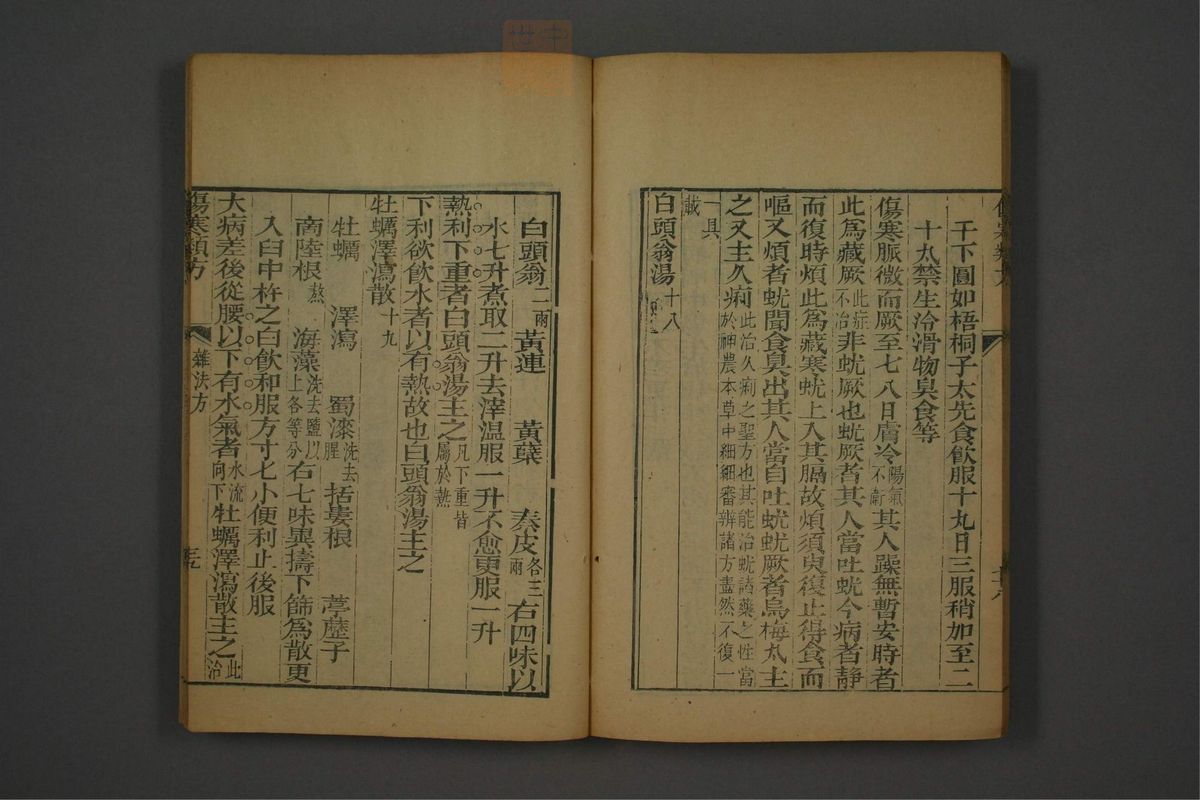 千下圓如梧桐子大先食飲服十丸日三服稍加至二
十丸禁生冷滑物臭食等
傷寒脈微而厥至七八日膚冷陽氣不衛其人躁無暫安時者
此爲藏厥此症不治非蚘厥也蚘厥者其人當吐蚘今病者靜
而復時煩此爲藏寒蚘上入其膈故煩須臾復止得食而
嘔又煩者蚘聞食臭出其人當自吐蚘蚘厥者烏梅丸主
之又主久痢此治久痢之聖方也其能治蚘諸藥之性當於神農本草中細細審辨諸方盡然不復一
一具載
白頭翁湯十八
白頭翁二兩 黃連 黃蘗 秦皮各三兩 右四味以
水七升煮取二升去滓温服一升不愈更服一升
熱利下重者白頭翁湯主之凡下重皆屬於熱
下利欲飲水者以有熱故也白頭翁湯主之
牡蠣澤瀉散十九
牡蠣 澤瀉 蜀漆洗去腥 括蔞根 葶藶子
商陸根熬 海藻洗去鹽以上各等分 右七味異擣下篩爲散更
入臼中杵之白飲和服方寸匕小便利止後服
大病差後從腰以下有水氣者水流向下牡蠣澤瀉散主之此治
傷寒類方 雜法方